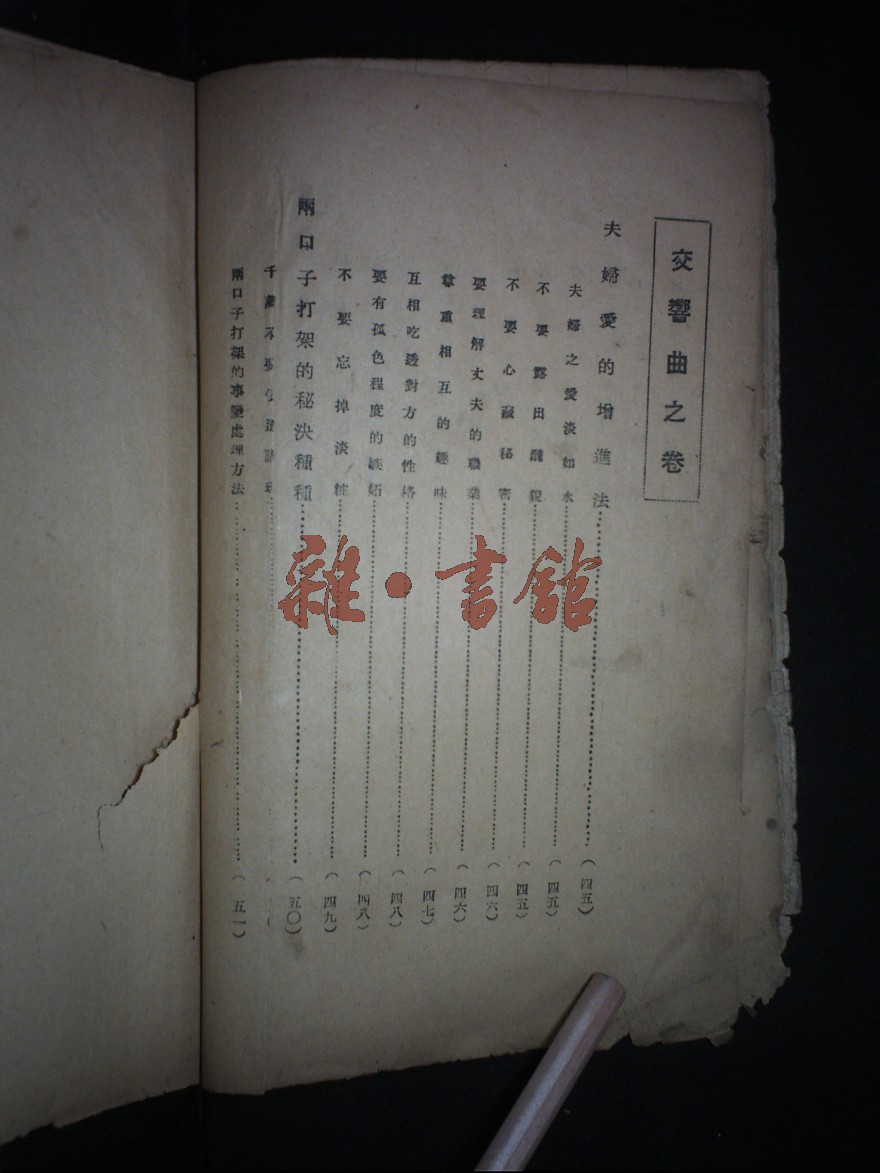 交響曲之卷
夫婦愛的增進法……(四五)
夫婦之愛淡如水……(四五)
不要露出醜貌……(四五)
不要心藏秘密……(四六)
要理解丈夫的職業……(四六)
尊重相互的趣味……(四七)
互相吃透對方的性格……(四八)
要有孤色程度的嫉妬……(四八)
不要忘掉淡粧……(四九)
兩口子打架的秘決種種……(五〇)
千萬不要
兩口子打架的事變處理方法……(五一)
雜·書館